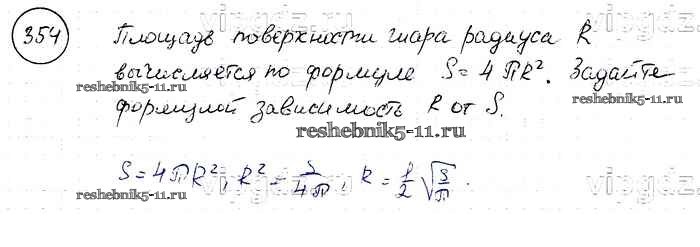 354 Площадь поверхности шара радиуса R
вычисляется по формуле S = 4πR². Задайте
формулой зависимость R от S.
S = 4πR², R² = S/4π, R = 1/2 √(S/π).
vipgdz
reshebnik5-11.ru
reshebnik5-11.ru
reshebnik5-11.ru
reshebnik5-11.ru
vipgdz
vipgdz